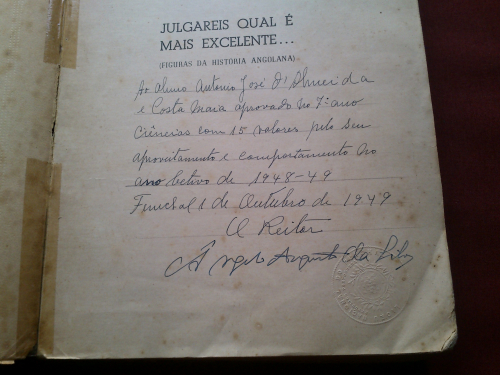 JULGAREIS QUAL É
MAIS EXCELENTE...
(FIGURAS DA HISTORIA ANGOLANA)
Ao aluno Antonio José d'Almeida
e Costa Mara aprovado no 7º ano
Ciências com 15 valores pelo seu
aproveitamento e comportamento no
ano lectivo de 1948-49
Funchal 1 de Outubro de 1949
O Reitor
Angelo Augusto da Silva